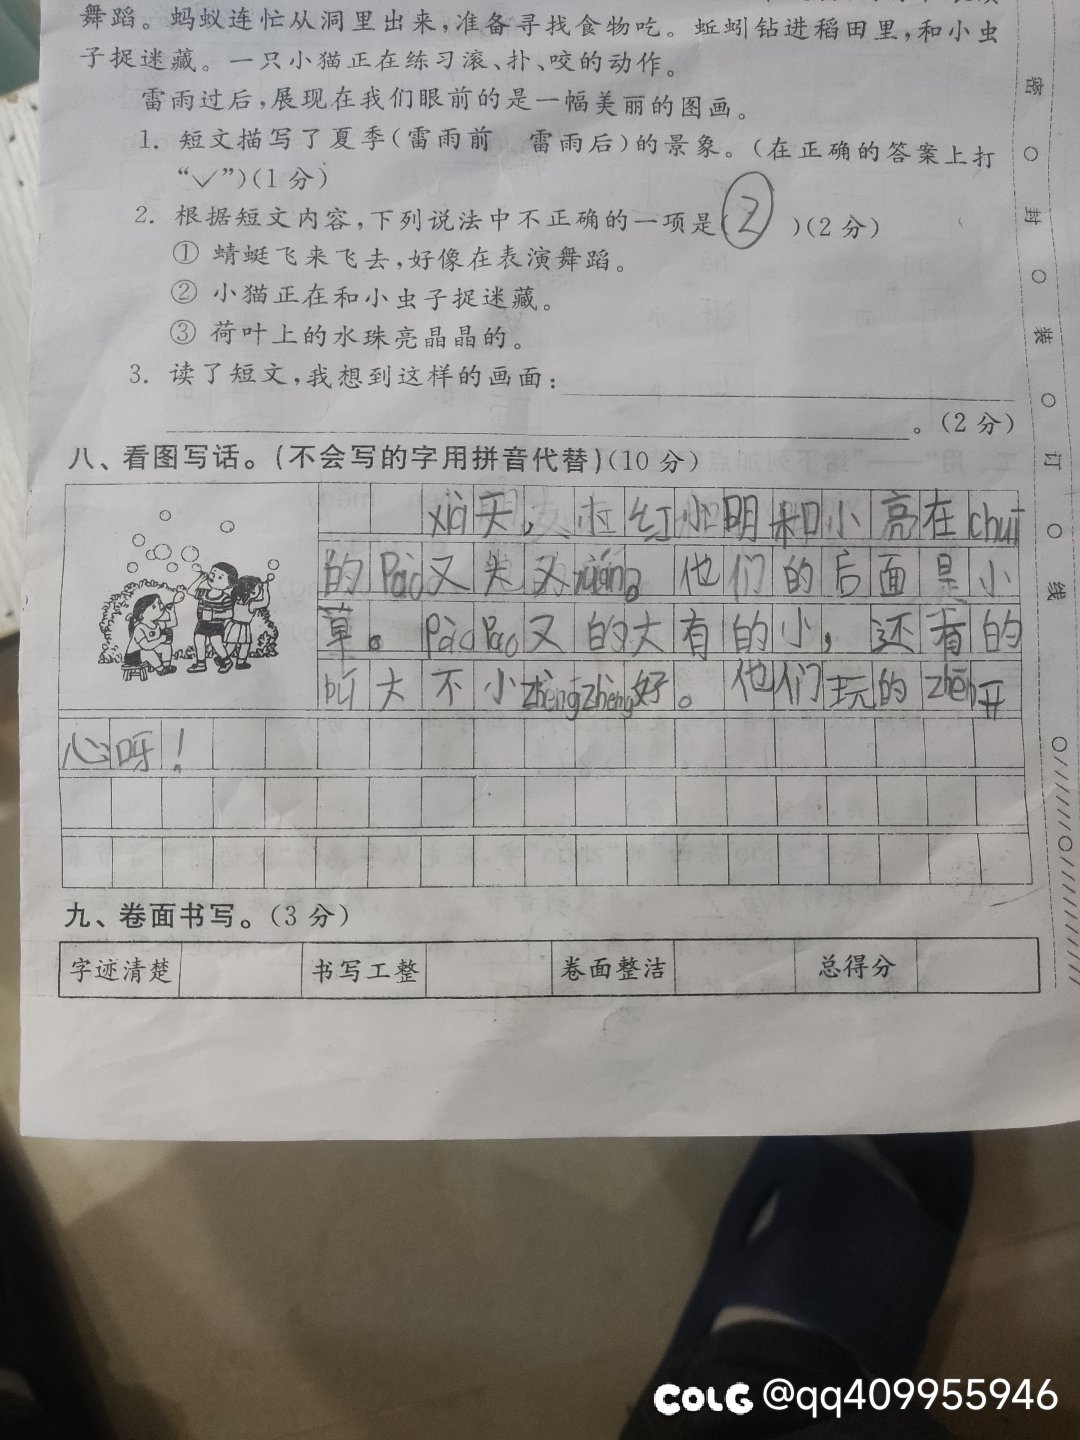 舞蹈。蚂蚁连忙从洞里出来,准备寻找食物吃。蚯蚓钻进稻田里,和小虫
子捉迷藏。一只小猫正在练习滚、扑、咬的动作。
雷雨过后,展现在我们眼前的是一幅美丽的图画。
1. 短文描写了夏季(雷雨前 雷雨后)的景象。(在正确的答案上打
“✓”)(1分)
2. 根据短文内容,下列说法中不正确的一项是( 2 )(2分)
① 蜻蜓飞来飞去,好像在表演舞蹈。
② 小猫正在和小虫子捉迷藏。
③ 荷叶上的水珠亮晶晶的。
3. 读了短文,我想到这样的画面:
。(2分)
八、看图写话。(不会写的字用拼音代替)(10分)
xià天,小红小明和小亮在chuī
的Pào又 又 。他们的后面是小
草。Pào Pao又的大有的小,还有的
bú大不小zhèngzhèng好。他们玩的zhēn开
心呀!
九、卷面书写。(3分)
字迹清楚 书写工整 卷面整洁 总得分
密 封 装 订 线
COLG @qq409955946